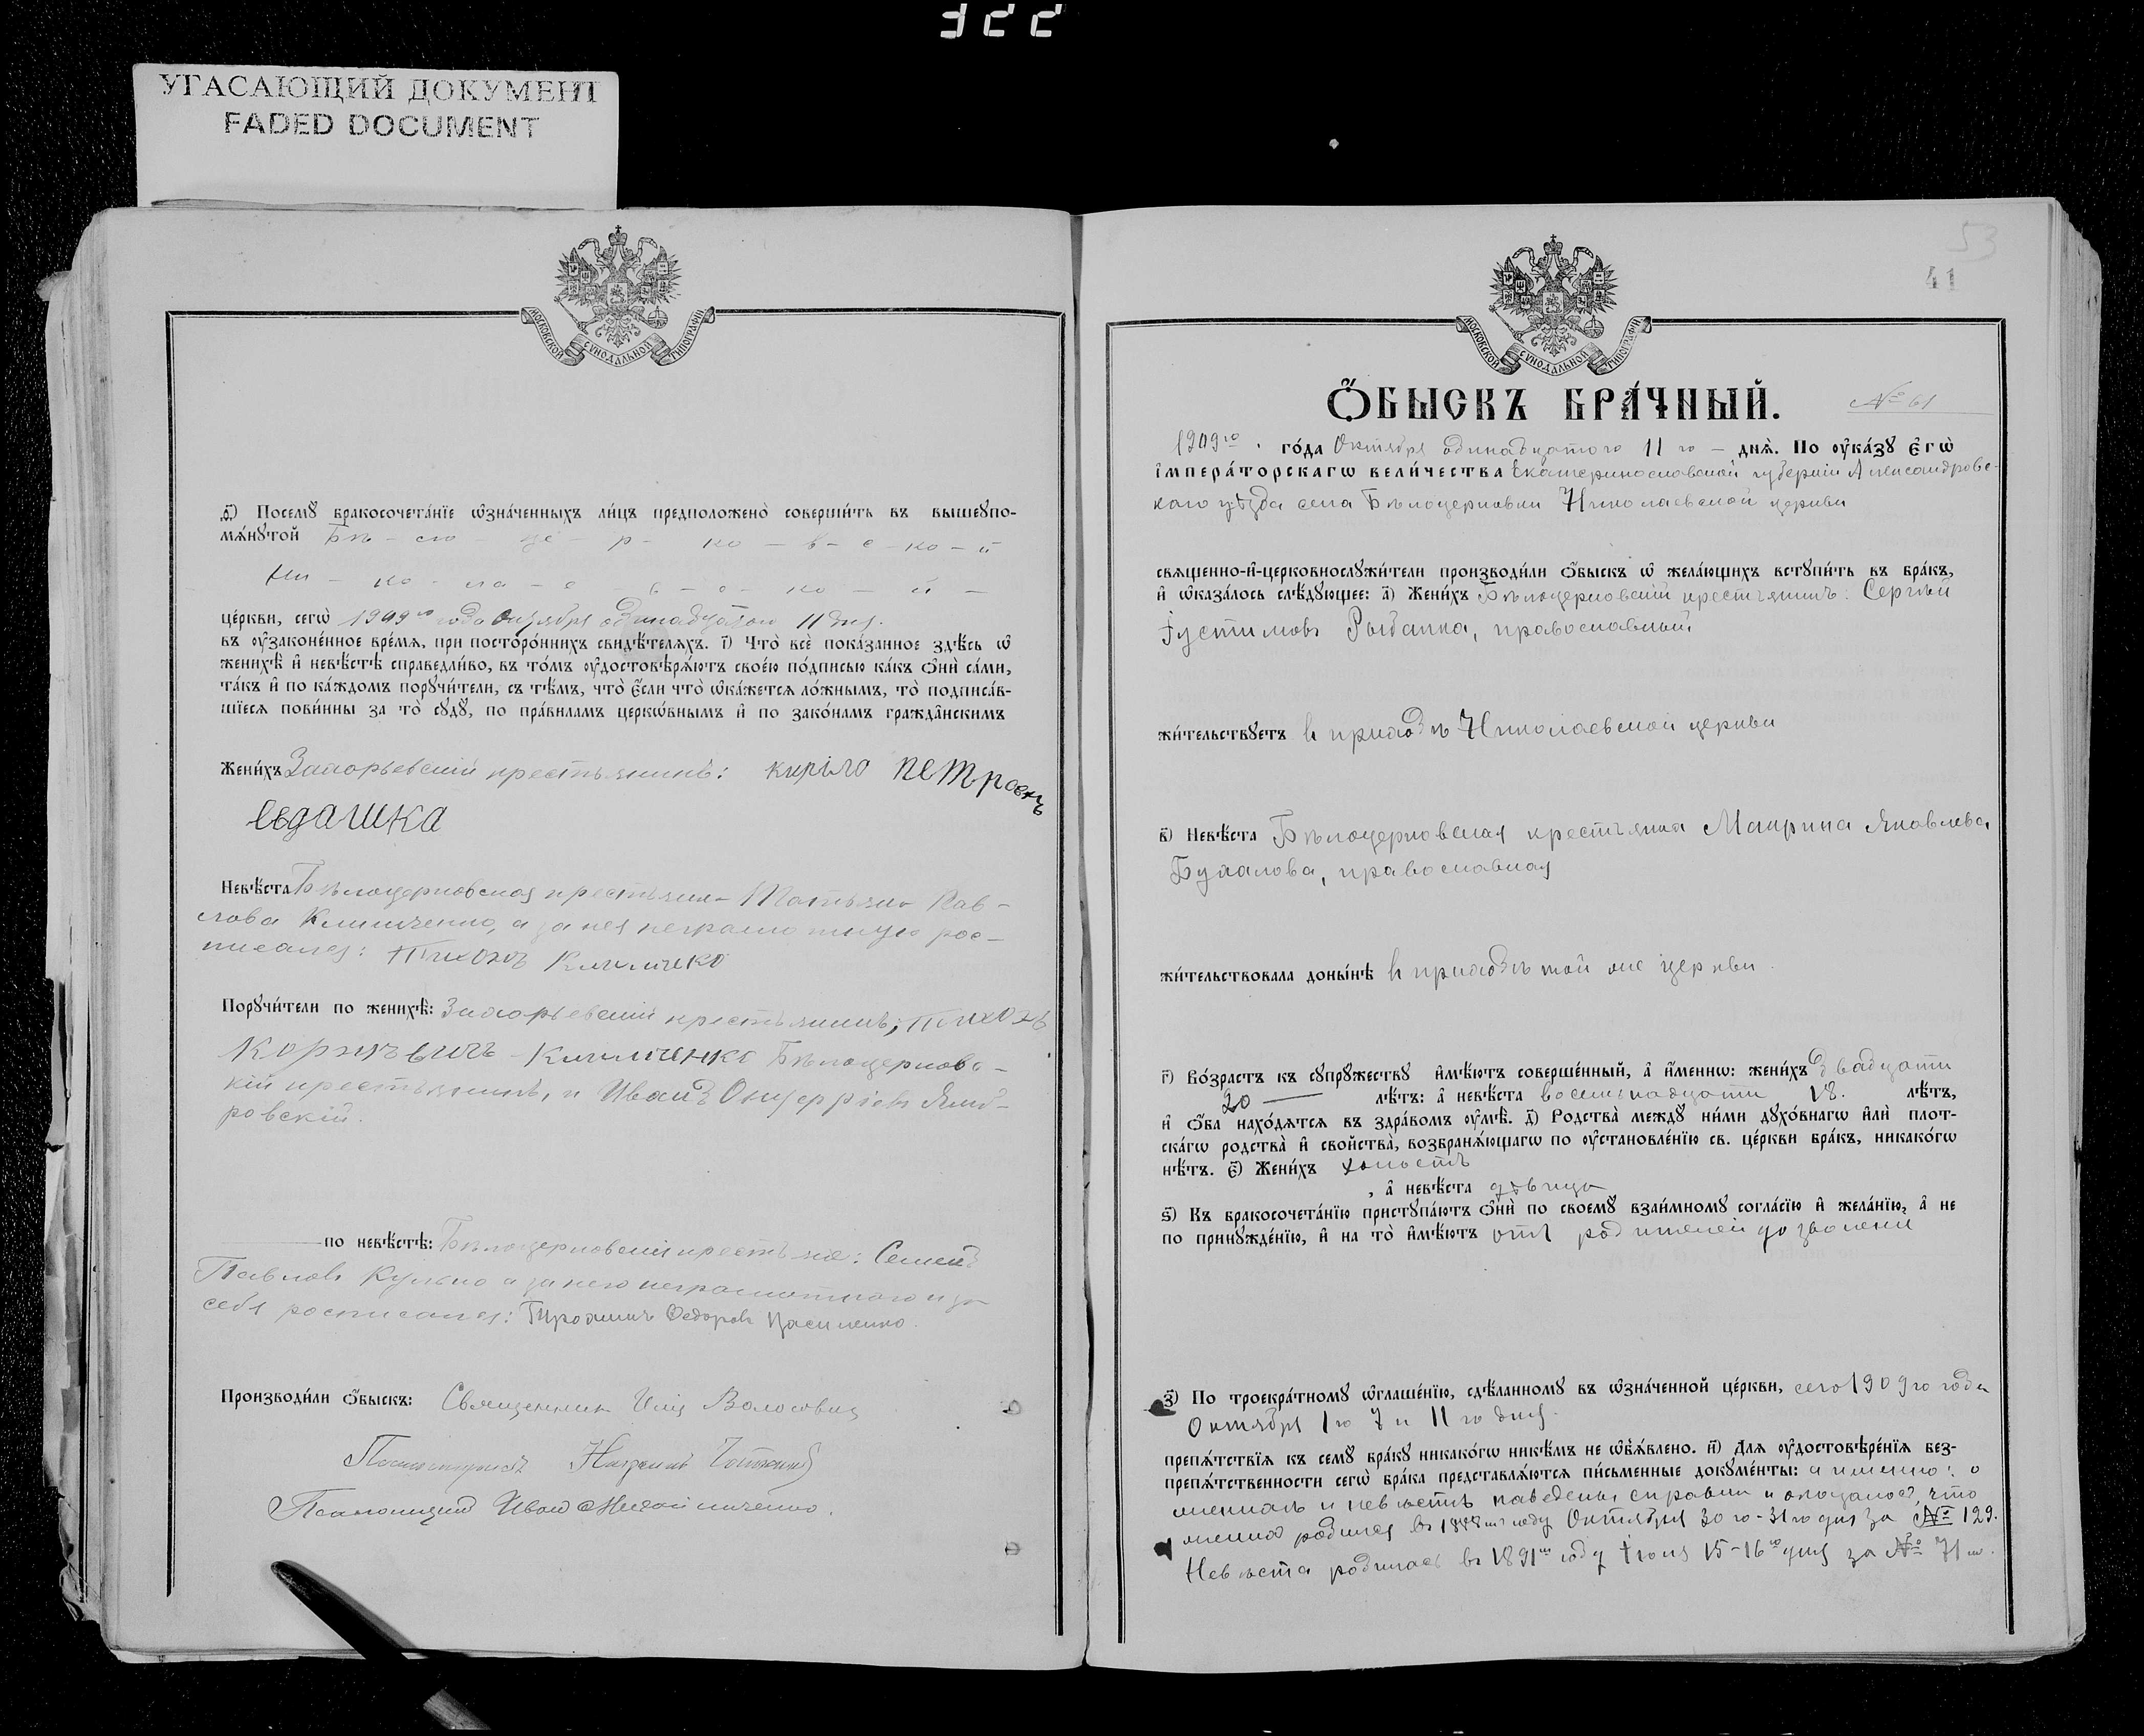 322
УГАСАЮЩИЙ ДОКУМЕНТ
FADED DOCUMENT
МОСКОВСКОЙ СѴНОДАЛЬНОЙ ТИПОГРАФІИ
ѳ҃) Посемꙋ̀ бракосочета́нїе ѡ҆зна́ченныхъ ли́цъ предположено̀ соверши́ть въ вышеꙋпо-
мѧ́нꙋтой Бѣ - ло - це - р - ко - в - с - ко - й
Ни - ко - ла - е - в - с - ко - й -
це́ркви, сегѡ̀ 1909го года Октября одинадцатого 11 дня.
въ ᲂу҆законе́нное вре́мѧ, при посторо́ннихъ свидѣ́телѧхъ. і҃) Что̀ всѐ пока́занное здѣ́сь ѡ҆
женихѣ̀ и҆ невѣ́стѣ справедли́во, въ то́мъ ᲂу҆достовѣрѧ́ютъ свое́ю по́дписью ка́къ ѻ҆нѝ са́ми,
та́къ и҆ по ка́ждомъ порꙋчи́тели, съ тѣ́мъ, что̀ є҆́сли что̀ ѡ҆ка́жетсѧ ло́жнымъ, то̀ подписа́в-
шїесѧ пови́нны за то̀ сꙋдꙋ̀, по пра́виламъ церкѡ́внымъ и҆ по зако́намъ гражда́нскимъ
Жени́хъ Запорьевскій крестьянинъ: Киріло Петровичъ
Седашка
Невѣ́ста Бѣлоцерковская крестьянка Татьяна Пав-
лова Климченко, а за нея неграмотную рос-
писался: Тихонъ Климченко
Порꙋчи́тели по женихѣ̀: Запорьевскій крестьянинъ; Тихонъ
Климченко Бѣлоцерковс-
кій крестьянинъ, и Иванъ Онуфріевъ Ямб-
ровскій.
по невѣ́стѣ: Бѣлоцерковскіи крестьяне: Семенъ
Павловъ а за него неграмотного и за
себя росписался: Федоровъ Василенко.
Производи́ли ѻ҆́быскъ: Священникъ Илія Волосовичъ
Псаломщикъ Иванъ Михайличенко.
53
41
МОСКОВСКОЙ СѴНОДАЛЬНОЙ ТИПОГРАФІИ
Ѻ҆́БЫСКЪ БРА́ЧНЫЙ. № 61
1909го го́да Октября одинадцатого 11 го - днѧ̀. По ᲂу҆ка́зꙋ Є҆гѡ̀
І҆мпера́торскагѡ вели́чества Екатеринославской губерніи Александровс-
каго уѣзда села Бѣлоцерковки Николаевской церкви
свѧщенно-и҆-церковнослꙋжи́тели производи́ли ѻ҆́быскъ ѡ҆ жела́ющихъ встꙋпи́ть въ бра́къ,
и҆ ѡ҆каза́лось слѣ́дꙋющее: а҃) Жени́хъ Бѣлоцерковскій крестьянинъ: Сергѣй
Іустимовъ Рыбалка, православный
жи́тельствꙋетъ въ приходѣ Николаевской церкви
в҃) Невѣ́ста Бѣлоцерковская крестьянка Маврина Яковлева
Бухалова, православная
жи́тельствовала доны́нѣ въ приходѣ той же церкви
г҃) Во́зрастъ къ сꙋпрꙋ́жествꙋ и҆мѣ́ютъ соверше́нный, а҆ и҆́меннѡ: жени́хъ двадцати
20 лѣ́тъ: а҆ невѣ́ста восемьнадцати 18. лѣ́тъ,
и҆ ѻ҆́ба нахо́дѧтсѧ въ здра́вомъ ᲂу҆мѣ̀. д҃) Родства̀ междꙋ̀ ни́ми дꙋхо́внагѡ и҆лѝ плот-
ска́гѡ родства̀ и҆ сво́йства̀, возбранѧ́ющагѡ по ᲂу҆становле́нїю св. це́ркви бра́къ, никако́гѡ
нѣ́тъ. є҃) Жени́хъ холостъ
, а҆ невѣ́ста дѣвица
ѕ҃) Къ бракосочета́нїю пристꙋпа́ютъ ѻ҆нѝ по своемꙋ̀ взаи́мномꙋ согла́сїю и҆ жела́нїю, а҆ не
по принꙋжде́нїю, и҆ на то̀ и҆мѣ́ютъ отъ родителей дозволени
з҃) По троекра́тномꙋ ѡ҆глаше́нїю, сдѣ́ланномꙋ въ ѡ҆зна́ченной це́ркви, сего 1909го года
Октября 1го 7 и 11го дня.
препѧ́тствїѧ къ семꙋ̀ бра́кꙋ никако́гѡ никѣ́мъ не ѡ҆б̾ѧ́влено. и҃) Длѧ ᲂу҆достовѣре́нїѧ без-
препѧ́тственности сегѡ̀ бра́ка представлѧ́ютсѧ пи́сьменные докꙋме́нты: а именно: о
женихѣ и невѣстѣ наведены справки и оказалось, что
женихъ родился въ 1888мъ году Октября 30го-31го дня за № 129.
Невѣста родилась въ 1891мъ году Іюня 15-16го дня за № 71м.